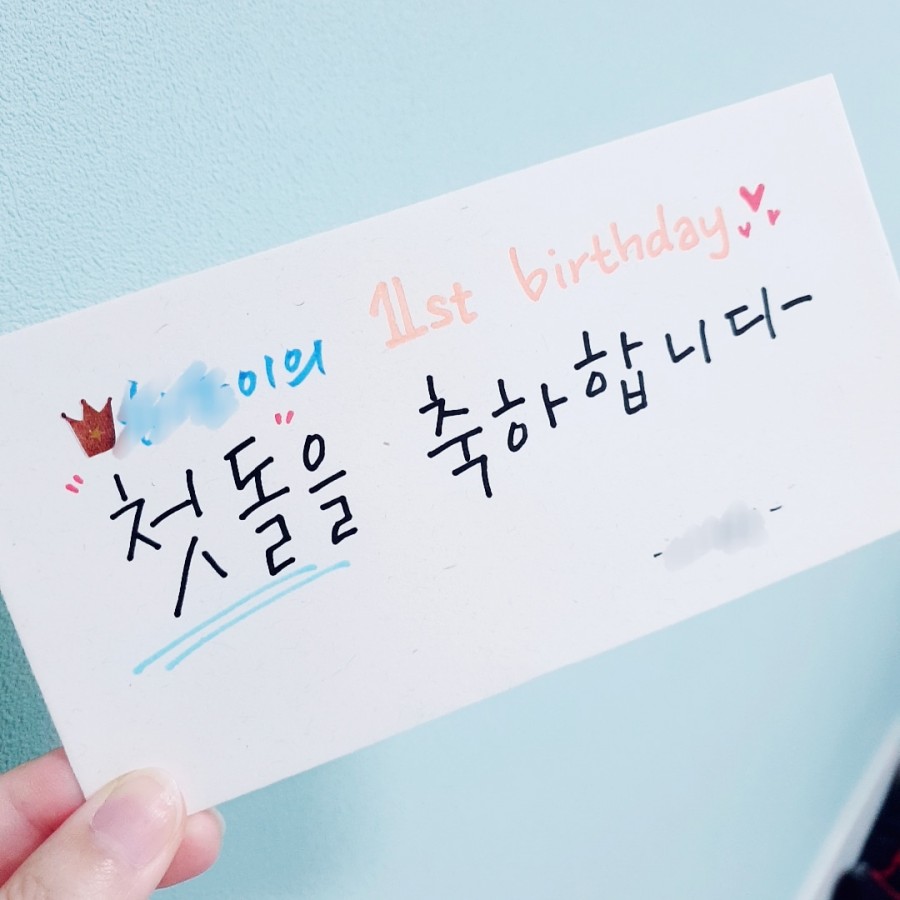 1st birthday
이의
"첫돌"을 축하합니다-